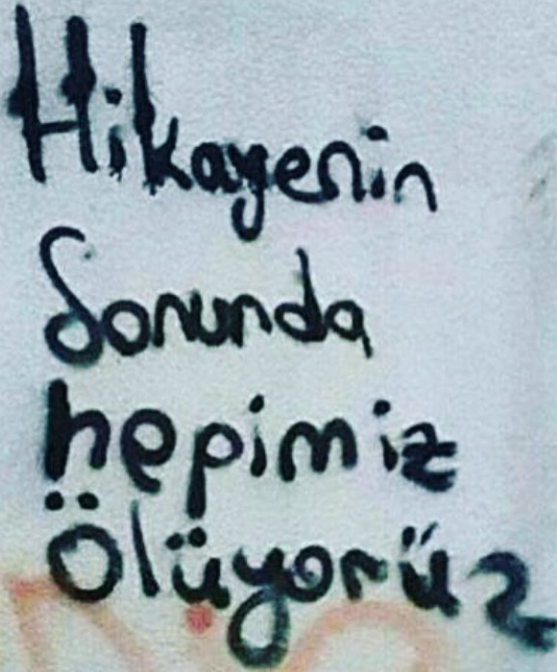 Hikayenin
Sonunda
hepimiz
Ölüyorüz